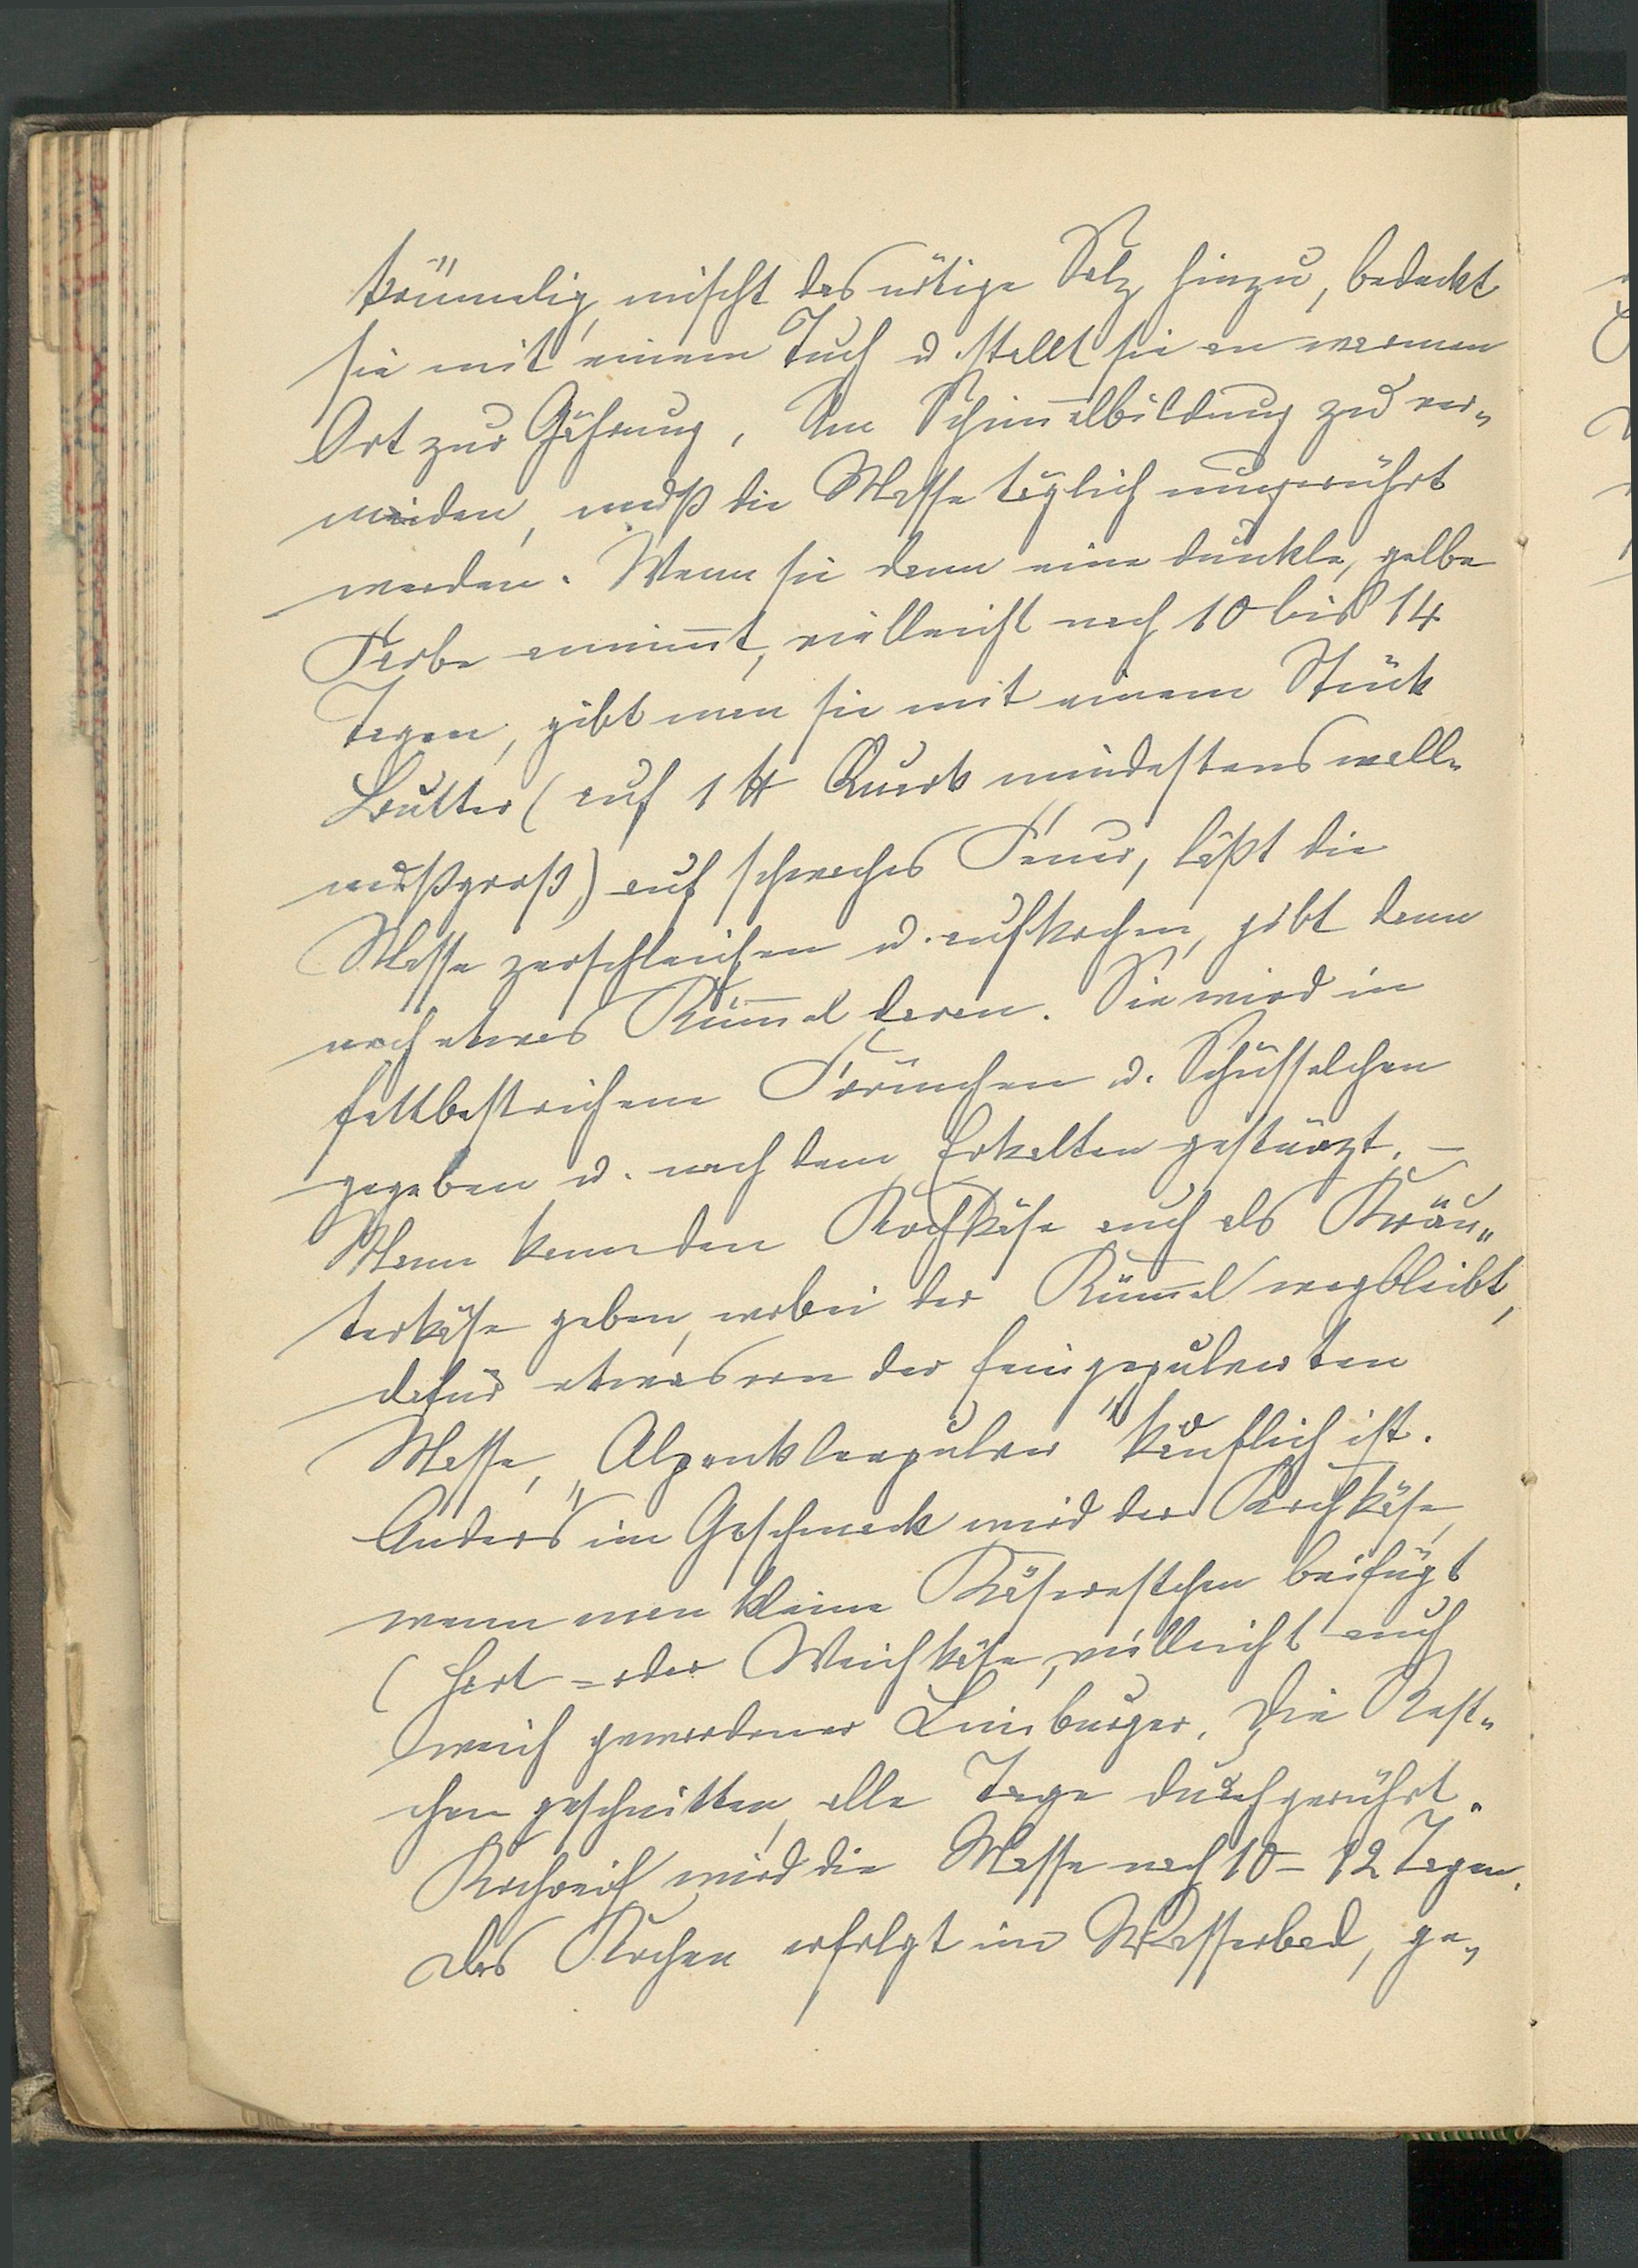 krümelig, mischt das nötige Salz hinzu, bedeckt
sie mit einem Tuch u. stellt sie an warmen
Ort zur Gährung. Um Schim̅elbildung zu ver„
meiden, muß die Masse täglich umgerührt
werden. Wenn sie dann eine dunkle, gelbe
Farbe annim̅t, vielleicht nach 10 bis 14
Tagen, gibt man sie mit einem Stück
Butter (auf 1 ℔ Quark mindestens wall„
nußgroß) auf schwaches Feuer, läßt die
Masse zerschleichen u. aufkochen, gibt dann
noch etwas Küm̅el daran. Sie wird in
fettbestrichene Förmchen u. Schüsselchen
gegeben u. nach dem Erkalten gestürzt. –
Mann kann den Kochkäse auch als Kräu„
terkäse geben, wobei der Küm̅el wegbleibt,
dafür etwas von der feingepulverten
Masse, „Alpenkleepulver" käuflich ist.
Anders im Geschmack wird der Kochkäse,
wenn man kleine Käserestchen beifügt
(Hart = oder Weichkäse, vielleicht auch
weich gewordener Limburger. Die Rest„
chen geschnitten, alle Tage durchgerührt.
Kochreif wird die Masse nach 10 – 12 Tagen.
Das Kochen erfolgt im Wasserbad, ge„